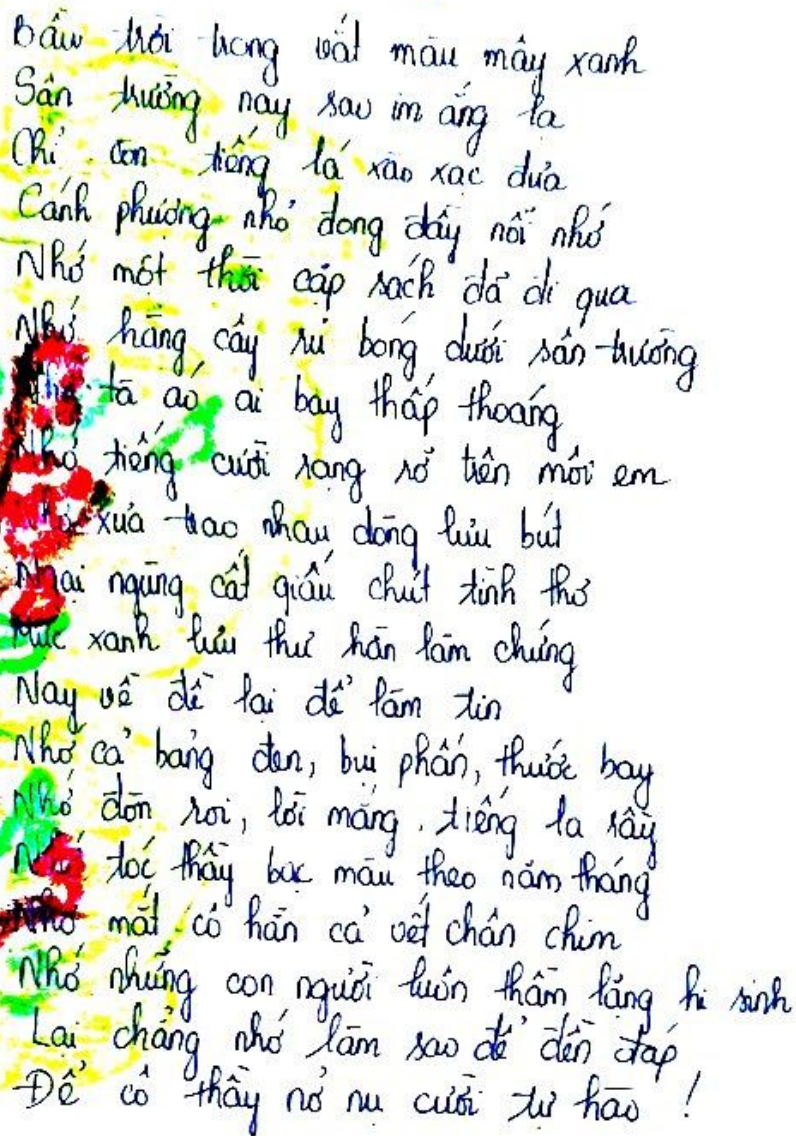 Bầu trời trong vắt màu mây xanh
Sân trường nay sao im ắng lạ
Chỉ còn tiếng lá xào xạc đưa
Cánh phượng nhỏ đong đầy nỗi nhớ
Nhớ một thời cắp sách đã đi qua
Nhớ hàng cây rủ bóng dưới sân trường
Nhớ tà áo ai bay thấp thoáng
Nhớ tiếng cười rạng rỡ trên môi em
Nhớ xưa trao nhau dòng lưu bút
Ngại ngùng cất giấu chút tình thơ
Mực xanh lưu thư hãn làm chứng
Nay về để lại để làm tin
Nhớ cả bảng đen, bụi phấn, thước bay
Nhớ đòn roi, lời mắng, tiếng la rầy
Nhớ tóc thầy bạc màu theo năm tháng
Nhớ mắt cô hằn cả vết chân chim
Nhớ những con người luôn thầm lặng hi sinh
Lại chẳng nhớ làm sao để đền đáp
Để cô thầy nở nụ cười tự hào !